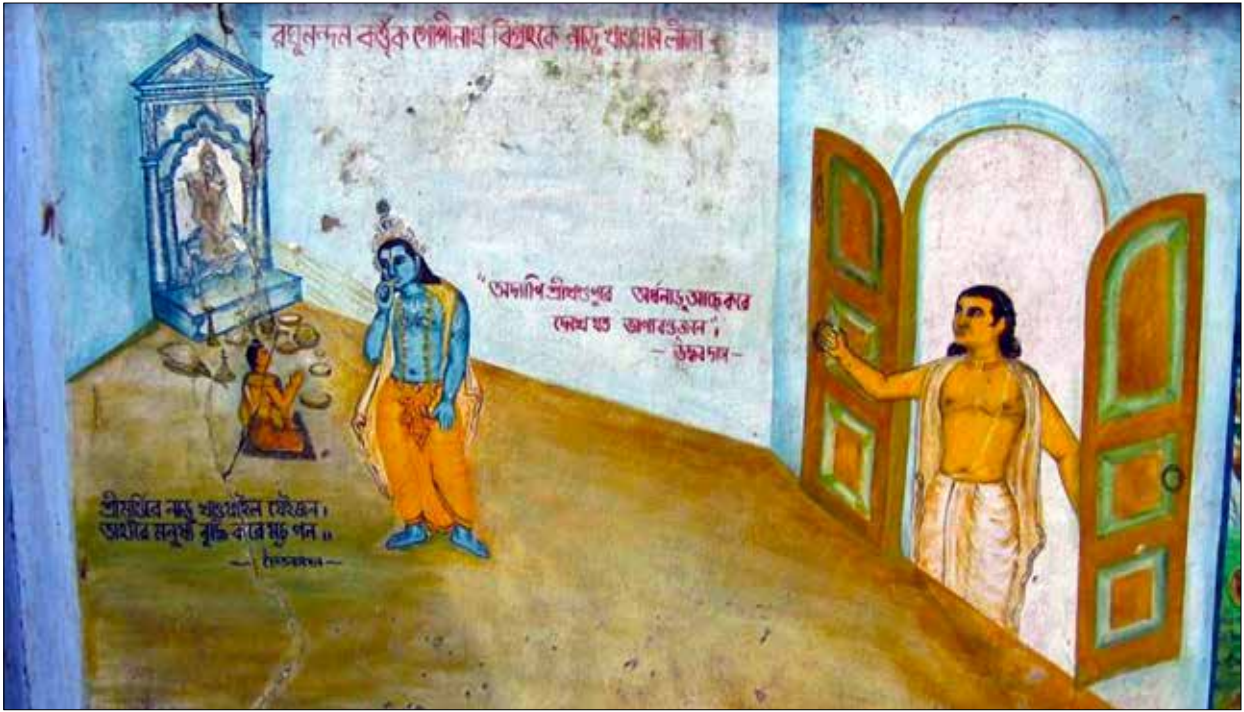 রঘুনন্দন কর্ত্তৃক গোপীনাথ বিগ্রহকে নাড়ু খাওয়ান লীলা
"অদ্যাপি শ্রীখণ্ডপুরে অর্ধনাড়ু আছে করে
দেখে যত ভাগ্যবন্তজনে"।
— উদ্ধব দাস —
শ্রীমূর্ত্তিরে নাড়ু খাওয়াইল যেইজন।
তাহারে মনুষ্য বুদ্ধি করে মূঢ় গন॥